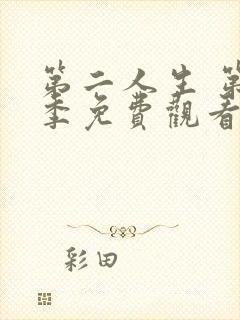 第二人生 第
季免費觀看
彩田